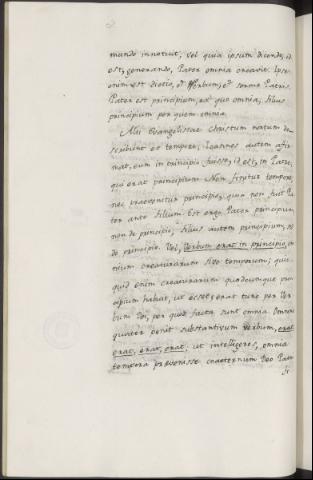 mundo innotuit, vel quia ipsum dicendo, id
est, generando, Pater omnia creavit. Ipse
enim est dictio, et Verbum, et sermo Patris.
Pater est principium, ex quo omnia, filius
principium per quem omnia.
Alii Evangelistae Christum natum de-
scribunt ex tempore, Joannes autem afir-
mat, eum in principio fuisse, id est, in Patre,
qui erat principium. Non finitur tempore,
nec praevenitur principio, quia non fuit Pa-
ter ante filium. Est ergo Pater principium
non de principio, filius autem principium,
de principio. Vel, Verbum erat in principio,
creaturarum sive temporum; quic-
quid enim creaturarum quodcumque prin-
cipium habuit, ut esset, erat tunc per Ver-
bum Dei, per quod facta sunt omnia.
quater ponit substantivum verbum, erat
erat, erat, erat, ut intelligeres, omnia
tempora praevenisse coaeternum Deo Patri